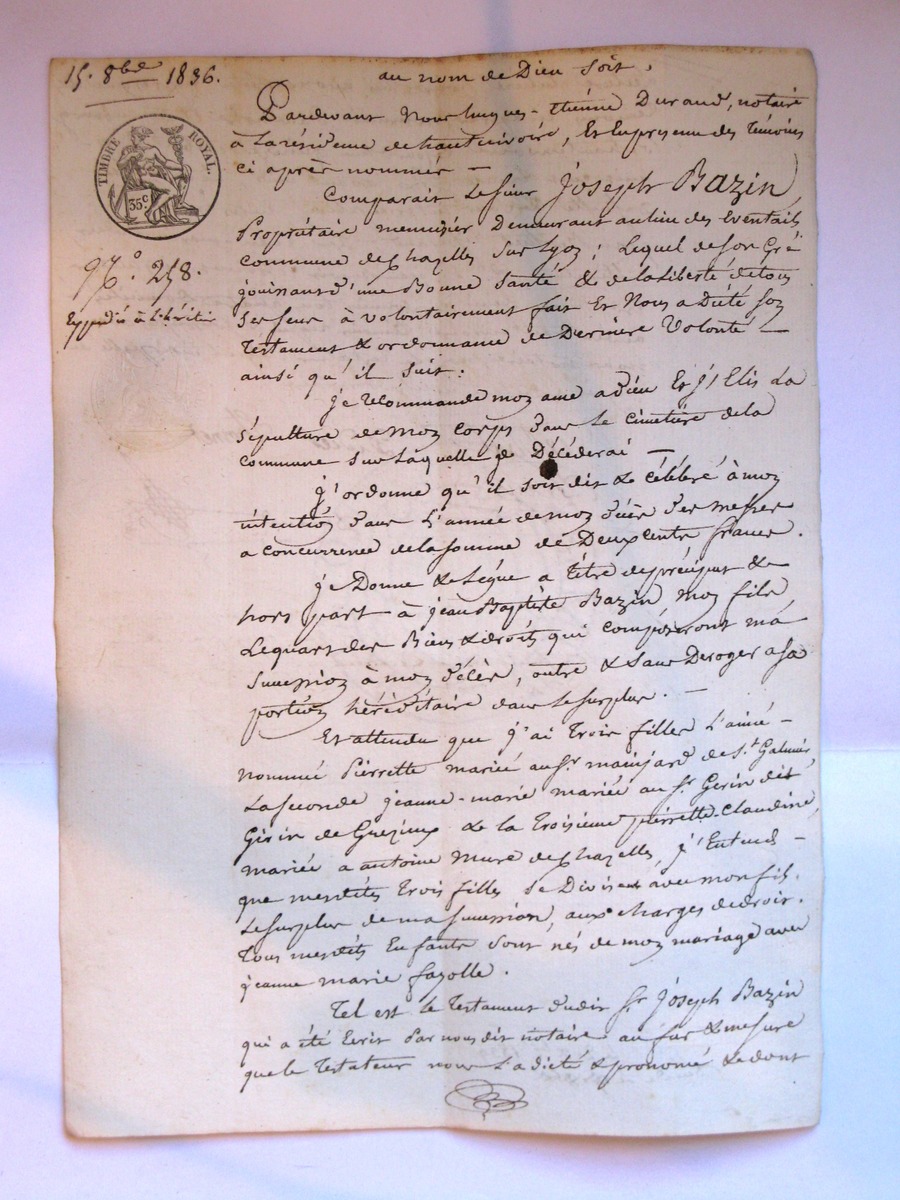 15. 8bre 1836.
au nom de Dieu soit.
TIMBRE ROYAL.
35 c.
Pardevant Nous hugues-Etienne Durand, notaire
a La résidence de hauterivoire, Et En presence des Témoins
ci après nommés —
Comparait Le sieur Joseph Bazin
Propriétaire menuisier Demeurant au lieu des Eventails
commune de Chazelles sur Lyon; Lequel de son Gré
jouissant d'une Bonne Santé & de la Liberté de tous
ses sens à volontairement fait Et Nous a Dicté son
Testament & ordonnance de Derniere Volonté —
ainsi qu'il suit:
N.° 258.
Expédié à L'héritier
je recommande mon ame a dieu Et j'Elis La
Sépulture de mon corps dans Le cimetière de la
commune sur Laquelle je Décéderai —
j'ordonne qu'il soit dit & célébré à mon
intention dans L'année de mon décès des messes
a concurrence de la somme de Deux cents francs.
je Donne & Légue a Titre de préciput &
hors part à jean Baptiste Bazin mon fils
Le quart des Biens & droits qui composeront ma
succession à mon décès, outre & sans Deroger a sa
portion héréditaire dans Le surplus. —
Et attendu que j'ai Trois filles L'ainée —
nommée Pierrette mariée au Sr. mainjard de St. Galmier
La seconde jeanne-marie mariée au Sr. Gerin dit
Girin de Grezieux & la Troisieme pierrette-Claudine,
mariée a antoine Mure de Chazelles, j'Entends —
que mesdites Trois filles se Divisent avec mon fils.
Le surplus de ma succession, aux charges de droit.
Tous mesdits Enfants sont nés de mon mariage avec
jeanne marie fayolle.
Tel est le Testament dudit Sr Joseph Bazin
qui a été Ecrit Par nous dit notaire au fur & mesure
que le Testateur nous L'a dicté & prononcé & dont